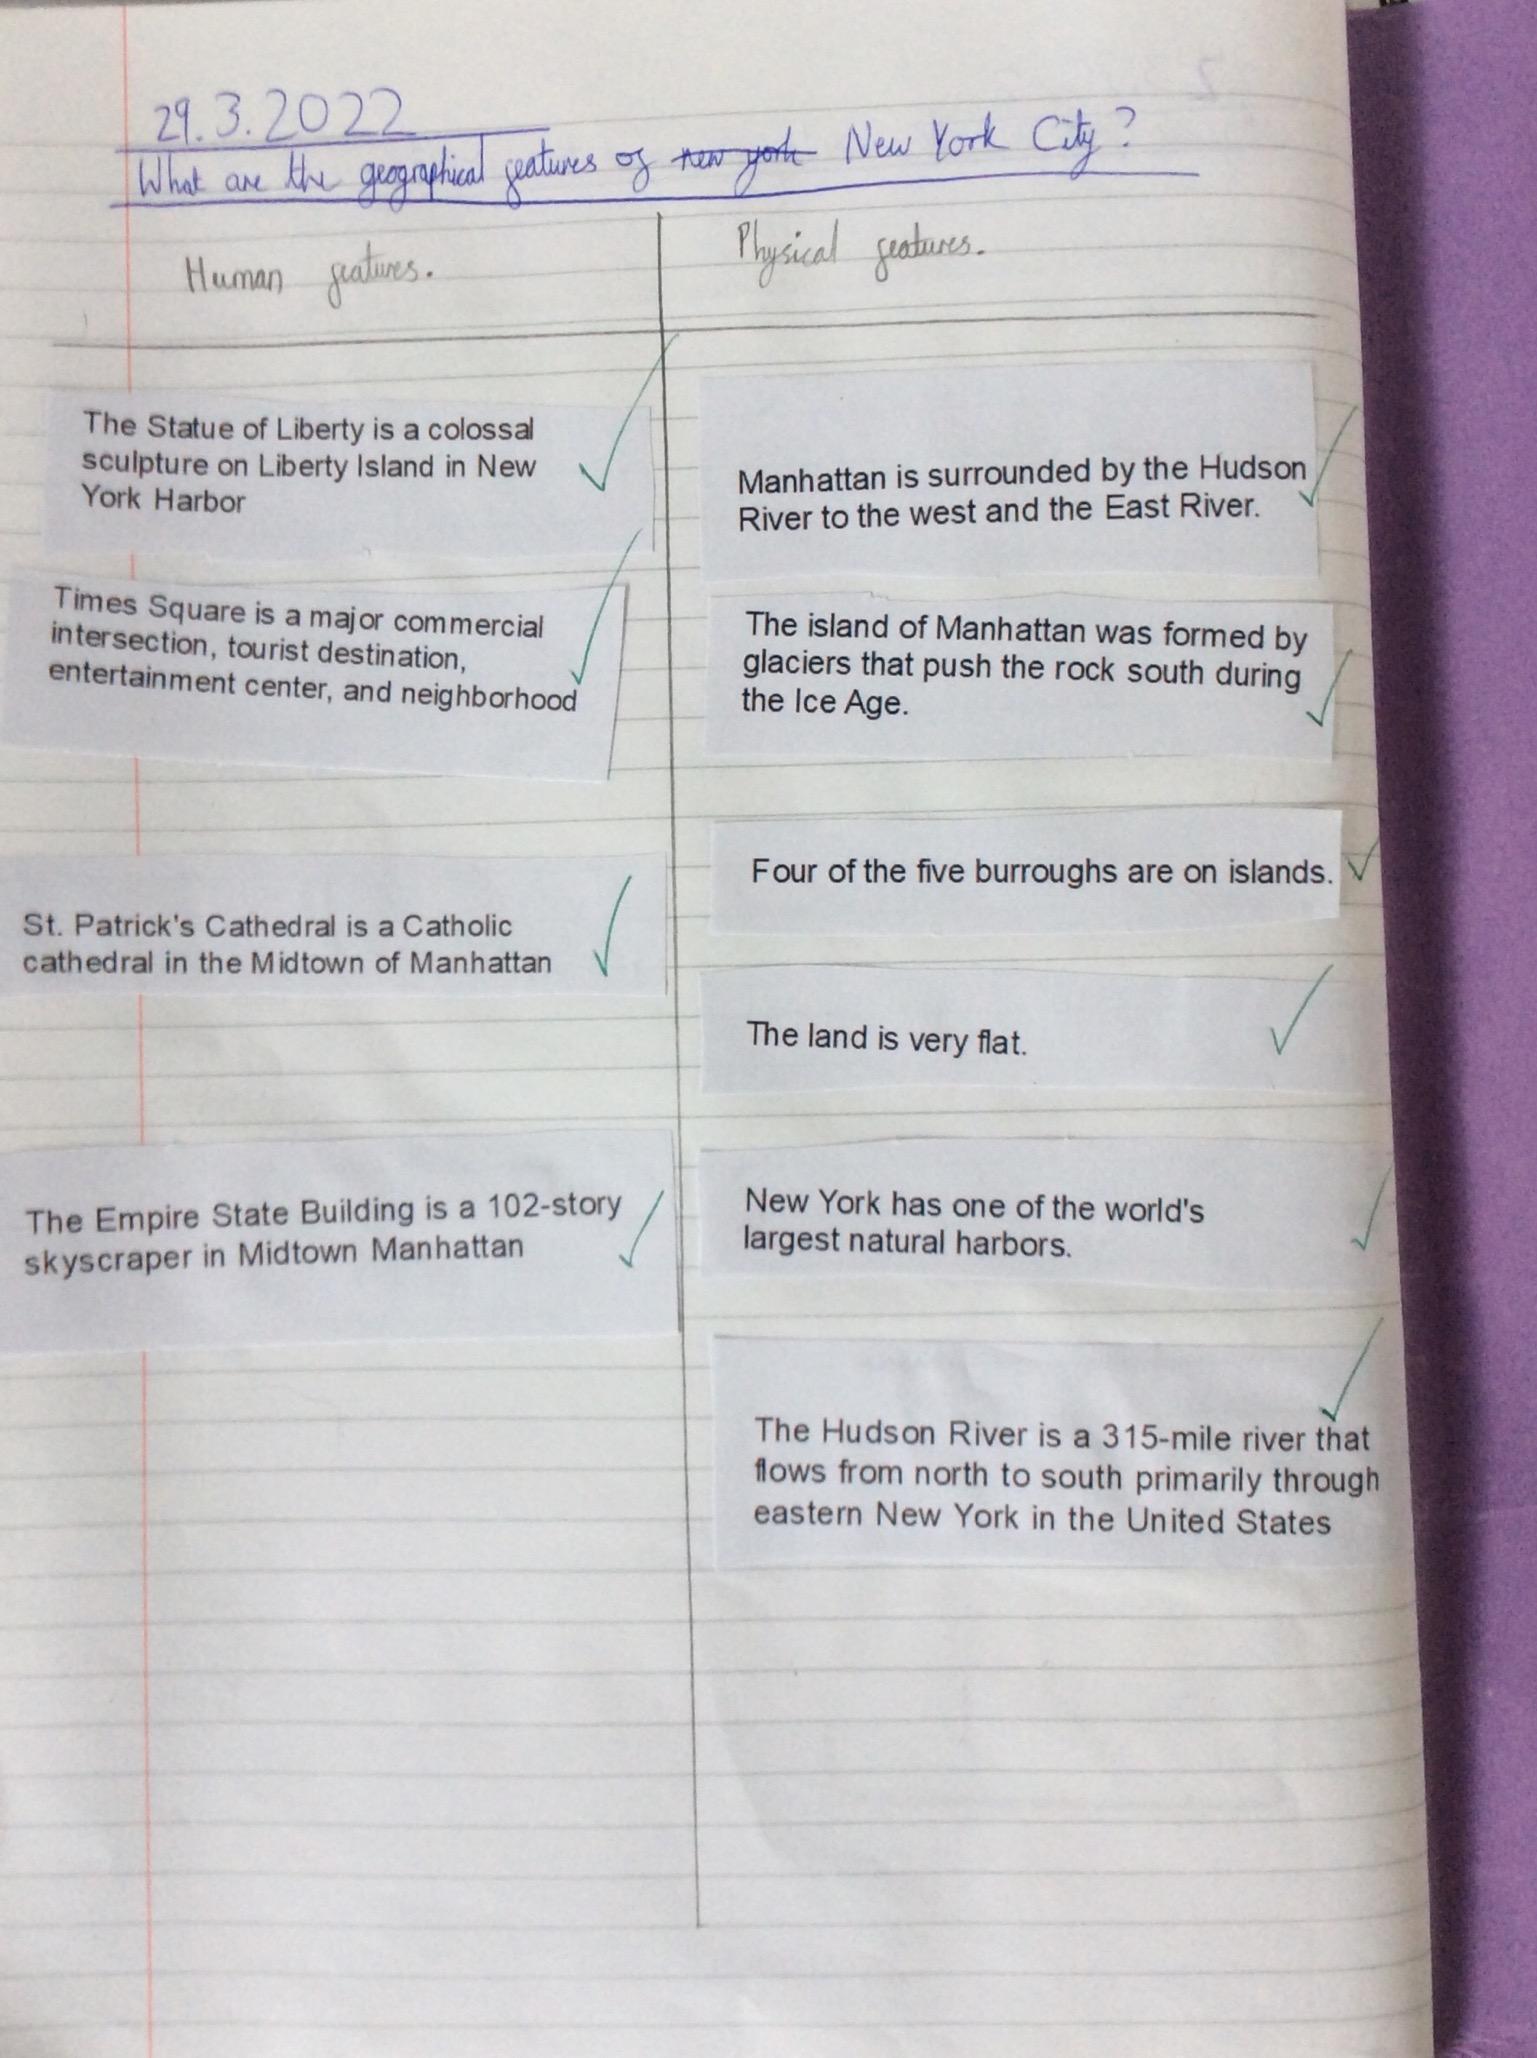 29.3.2022
What are the geographical features of new york New York City?
Human features.
Physical features.
The Statue of Liberty is a colossal
sculpture on Liberty Island in New
York Harbor
Times Square is a major commercial
intersection, tourist destination,
entertainment center, and neighborhood
St. Patrick's Cathedral is a Catholic
cathedral in the Midtown of Manhattan
The Empire State Building is a 102-story
skyscraper in Midtown Manhattan
Manhattan is surrounded by the Hudson
River to the west and the East River.
The island of Manhattan was formed by
glaciers that push the rock south during
the Ice Age.
Four of the five burroughs are on islands.
The land is very flat.
New York has one of the world's
largest natural harbors.
The Hudson River is a 315-mile river that
flows from north to south primarily through
eastern New York in the United States